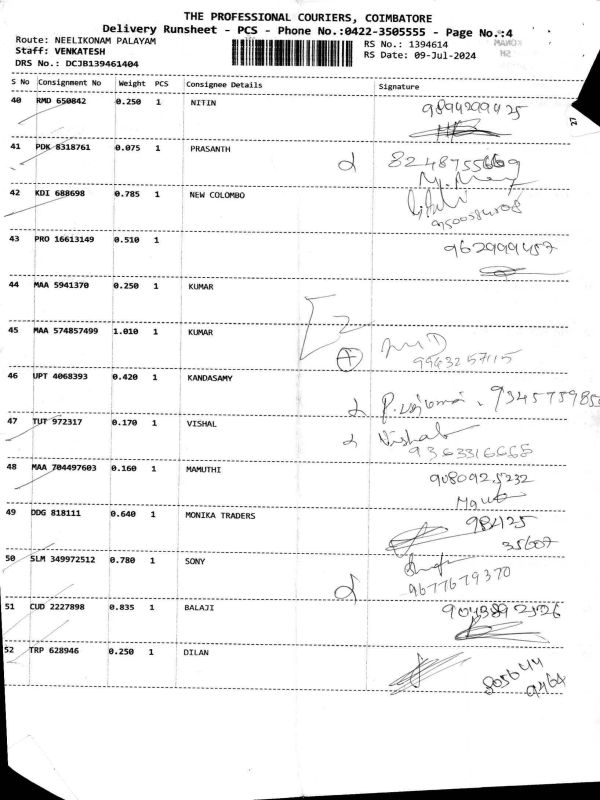 THE PROFESSIONAL COURIERS, COIMBATORE
Delivery Runsheet - PCS - Phone No.:0422-3505555 - Page No.:4
Route: NEELIKONAM PALAYAM
RS No.: 1394614
Staff: VENKATESH
RS Date: 09-Jul-2024
DRS No.: DCJB139461404
S No Consignment No Weight PCS Consignee Details Signature
40 RMD 650842 0.250 1 NITIN
9894299425
27
41 PDK 8318761 0.075 1 PRASANTH
8248755669
42 KDI 688698 0.785 1 NEW COLOMBO
43 PRO 16613149 0.510 1
962999457
44 MAA 5941370 0.250 1 KUMAR
45 MAA 574857499 1.010 1 KUMAR
9943257115
46 UPT 4068393 0.420 1 KANDASAMY
47 TUT 972317 0.170 1 VISHAL
Vishal
9363316668
48 MAA 704497603 0.160 1 MAMUTHI
9080925232
49 DDG 818111 0.640 1 MONIKA TRADERS
98425
35607
50 SLM 349972512 0.780 1 SONY
9677679370
51 CUD 2227898 0.835 1 BALAJI
9043892526
52 TRP 628946 0.250 1 DILAN
805644
9464